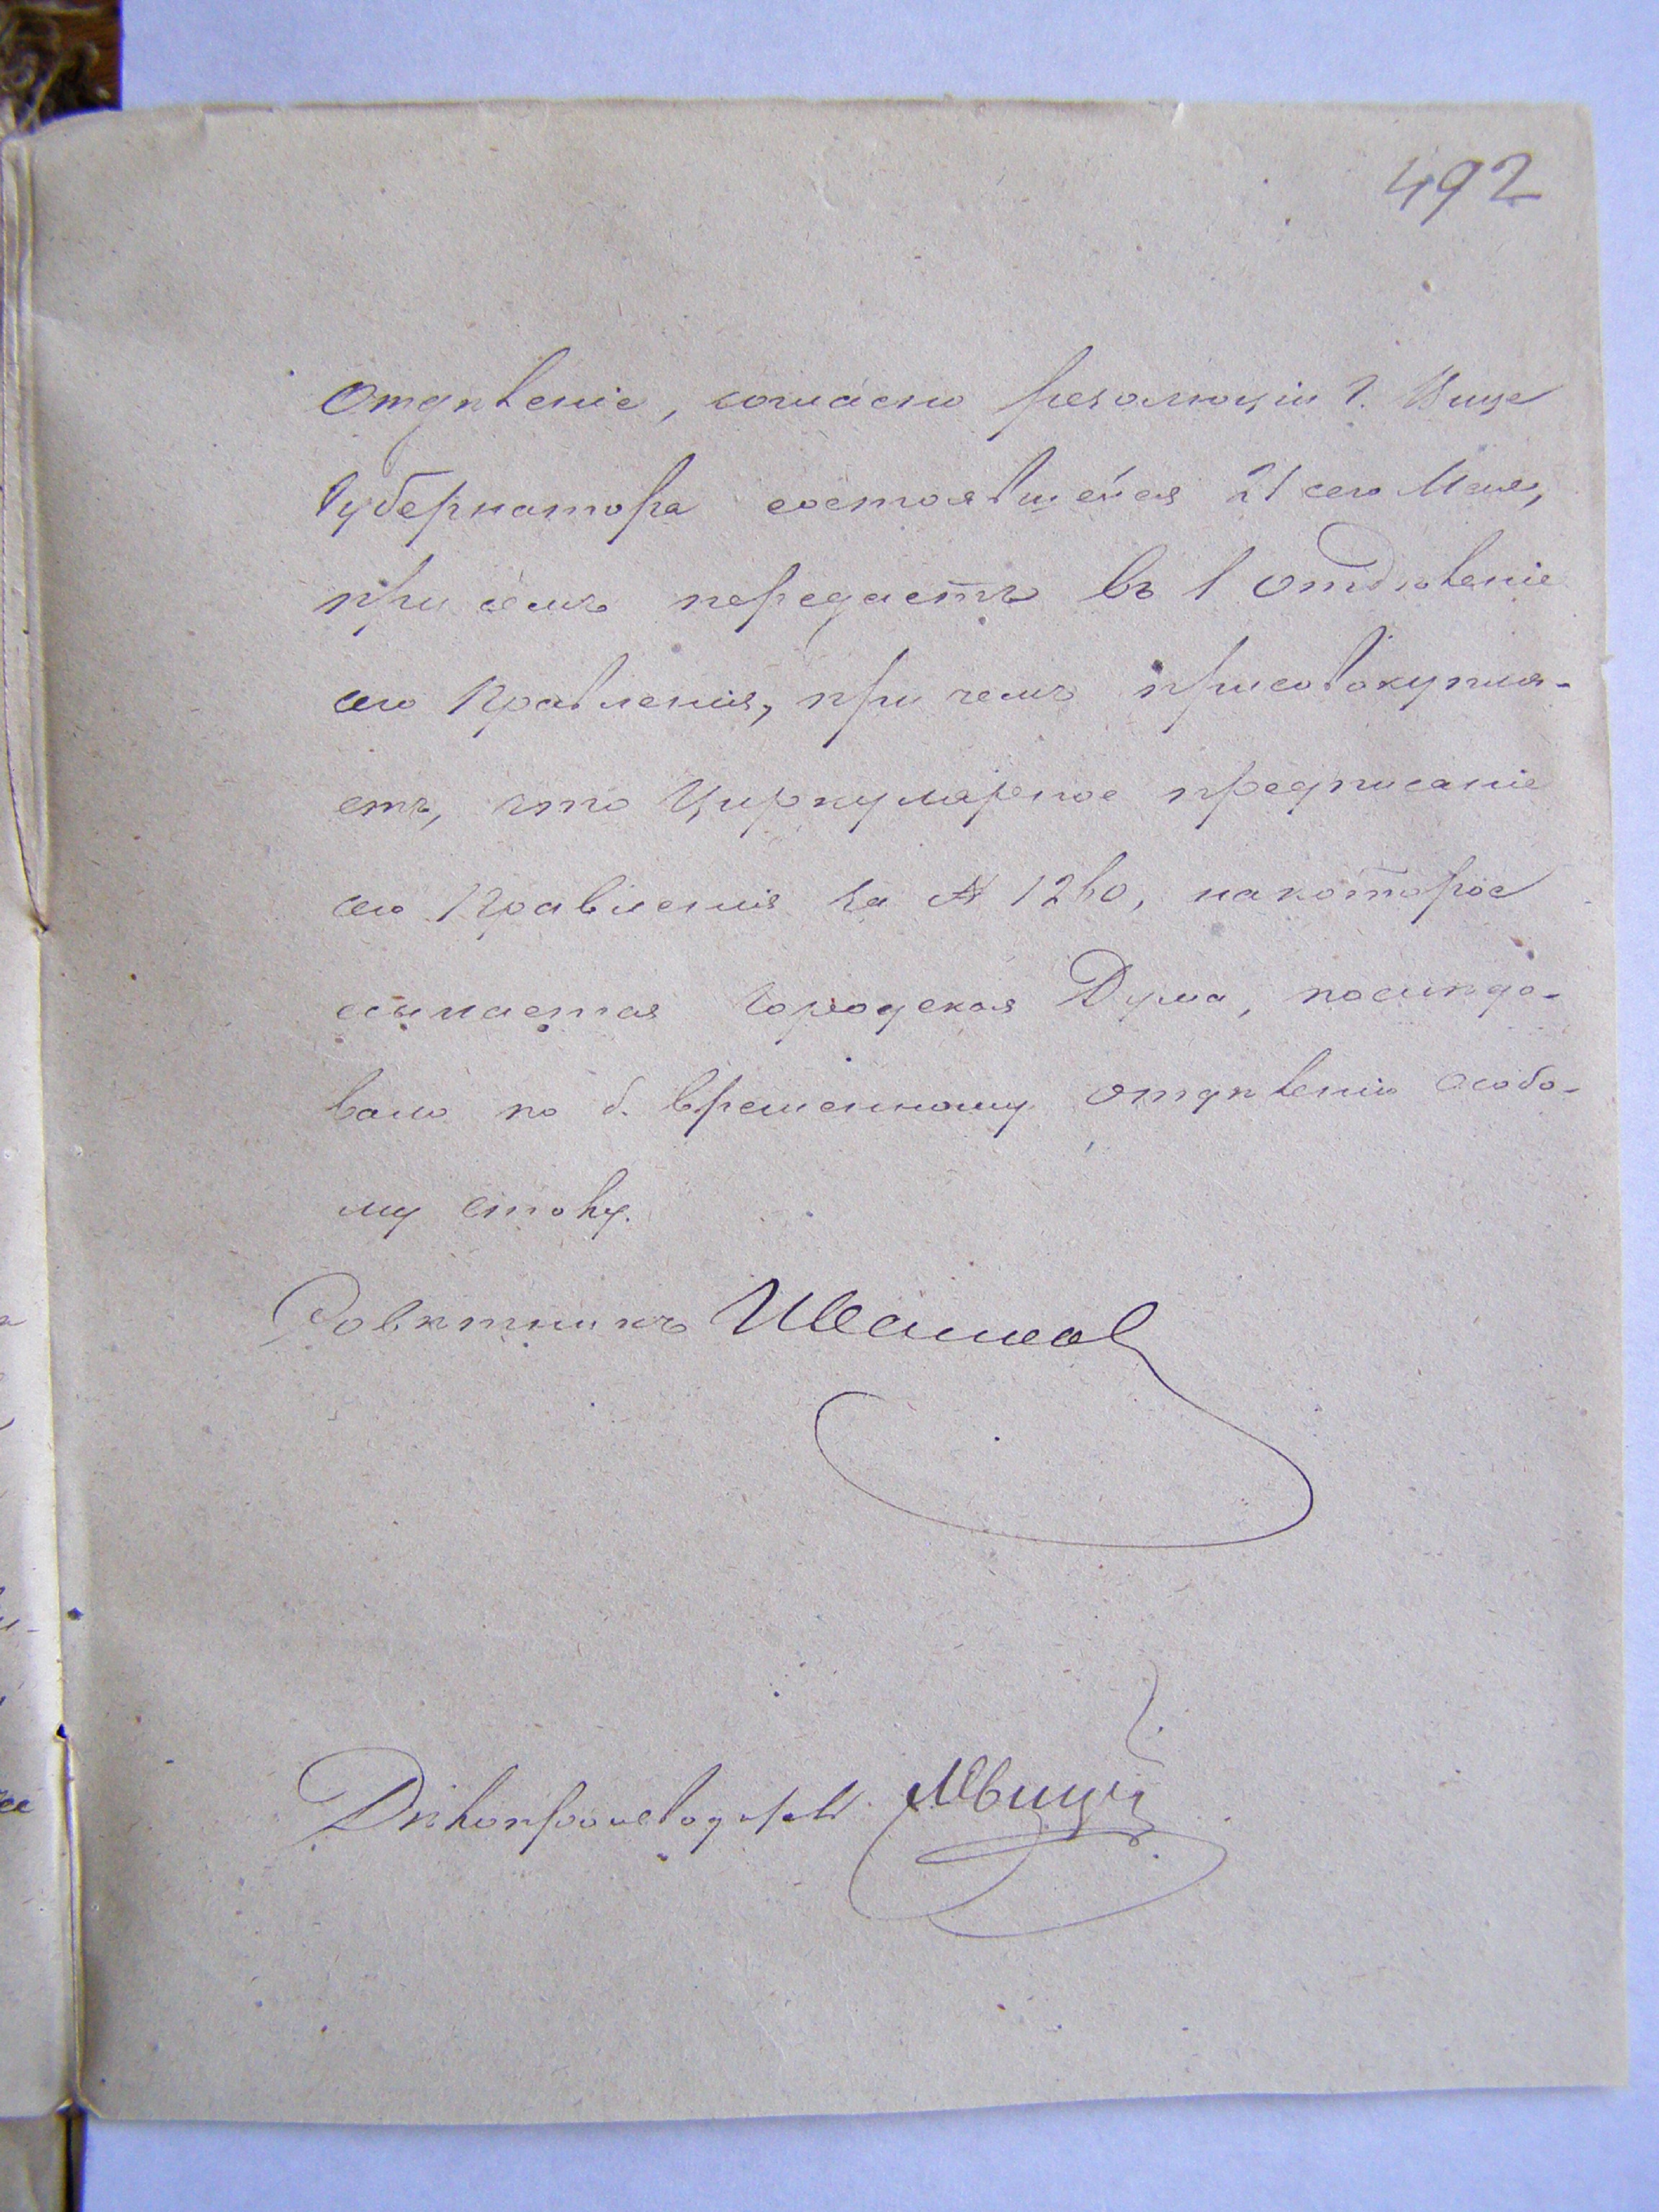 492
Отдѣленіе, согласно резолюціи Г. Вице
Губернатора состоявшейся 21 сего Мая,
при семъ передаетъ въ 1 Отдѣленіе
сего Правленія, при чемъ присовокупля-
етъ, что Циркулярное предписаніе
сего Правленія за № 1260, на которое
ссылается Городская Дума, послѣдо-
вало по б. временному отдѣленію Особо-
му столу.
Совѣтникъ
Дѣлопроизводитель